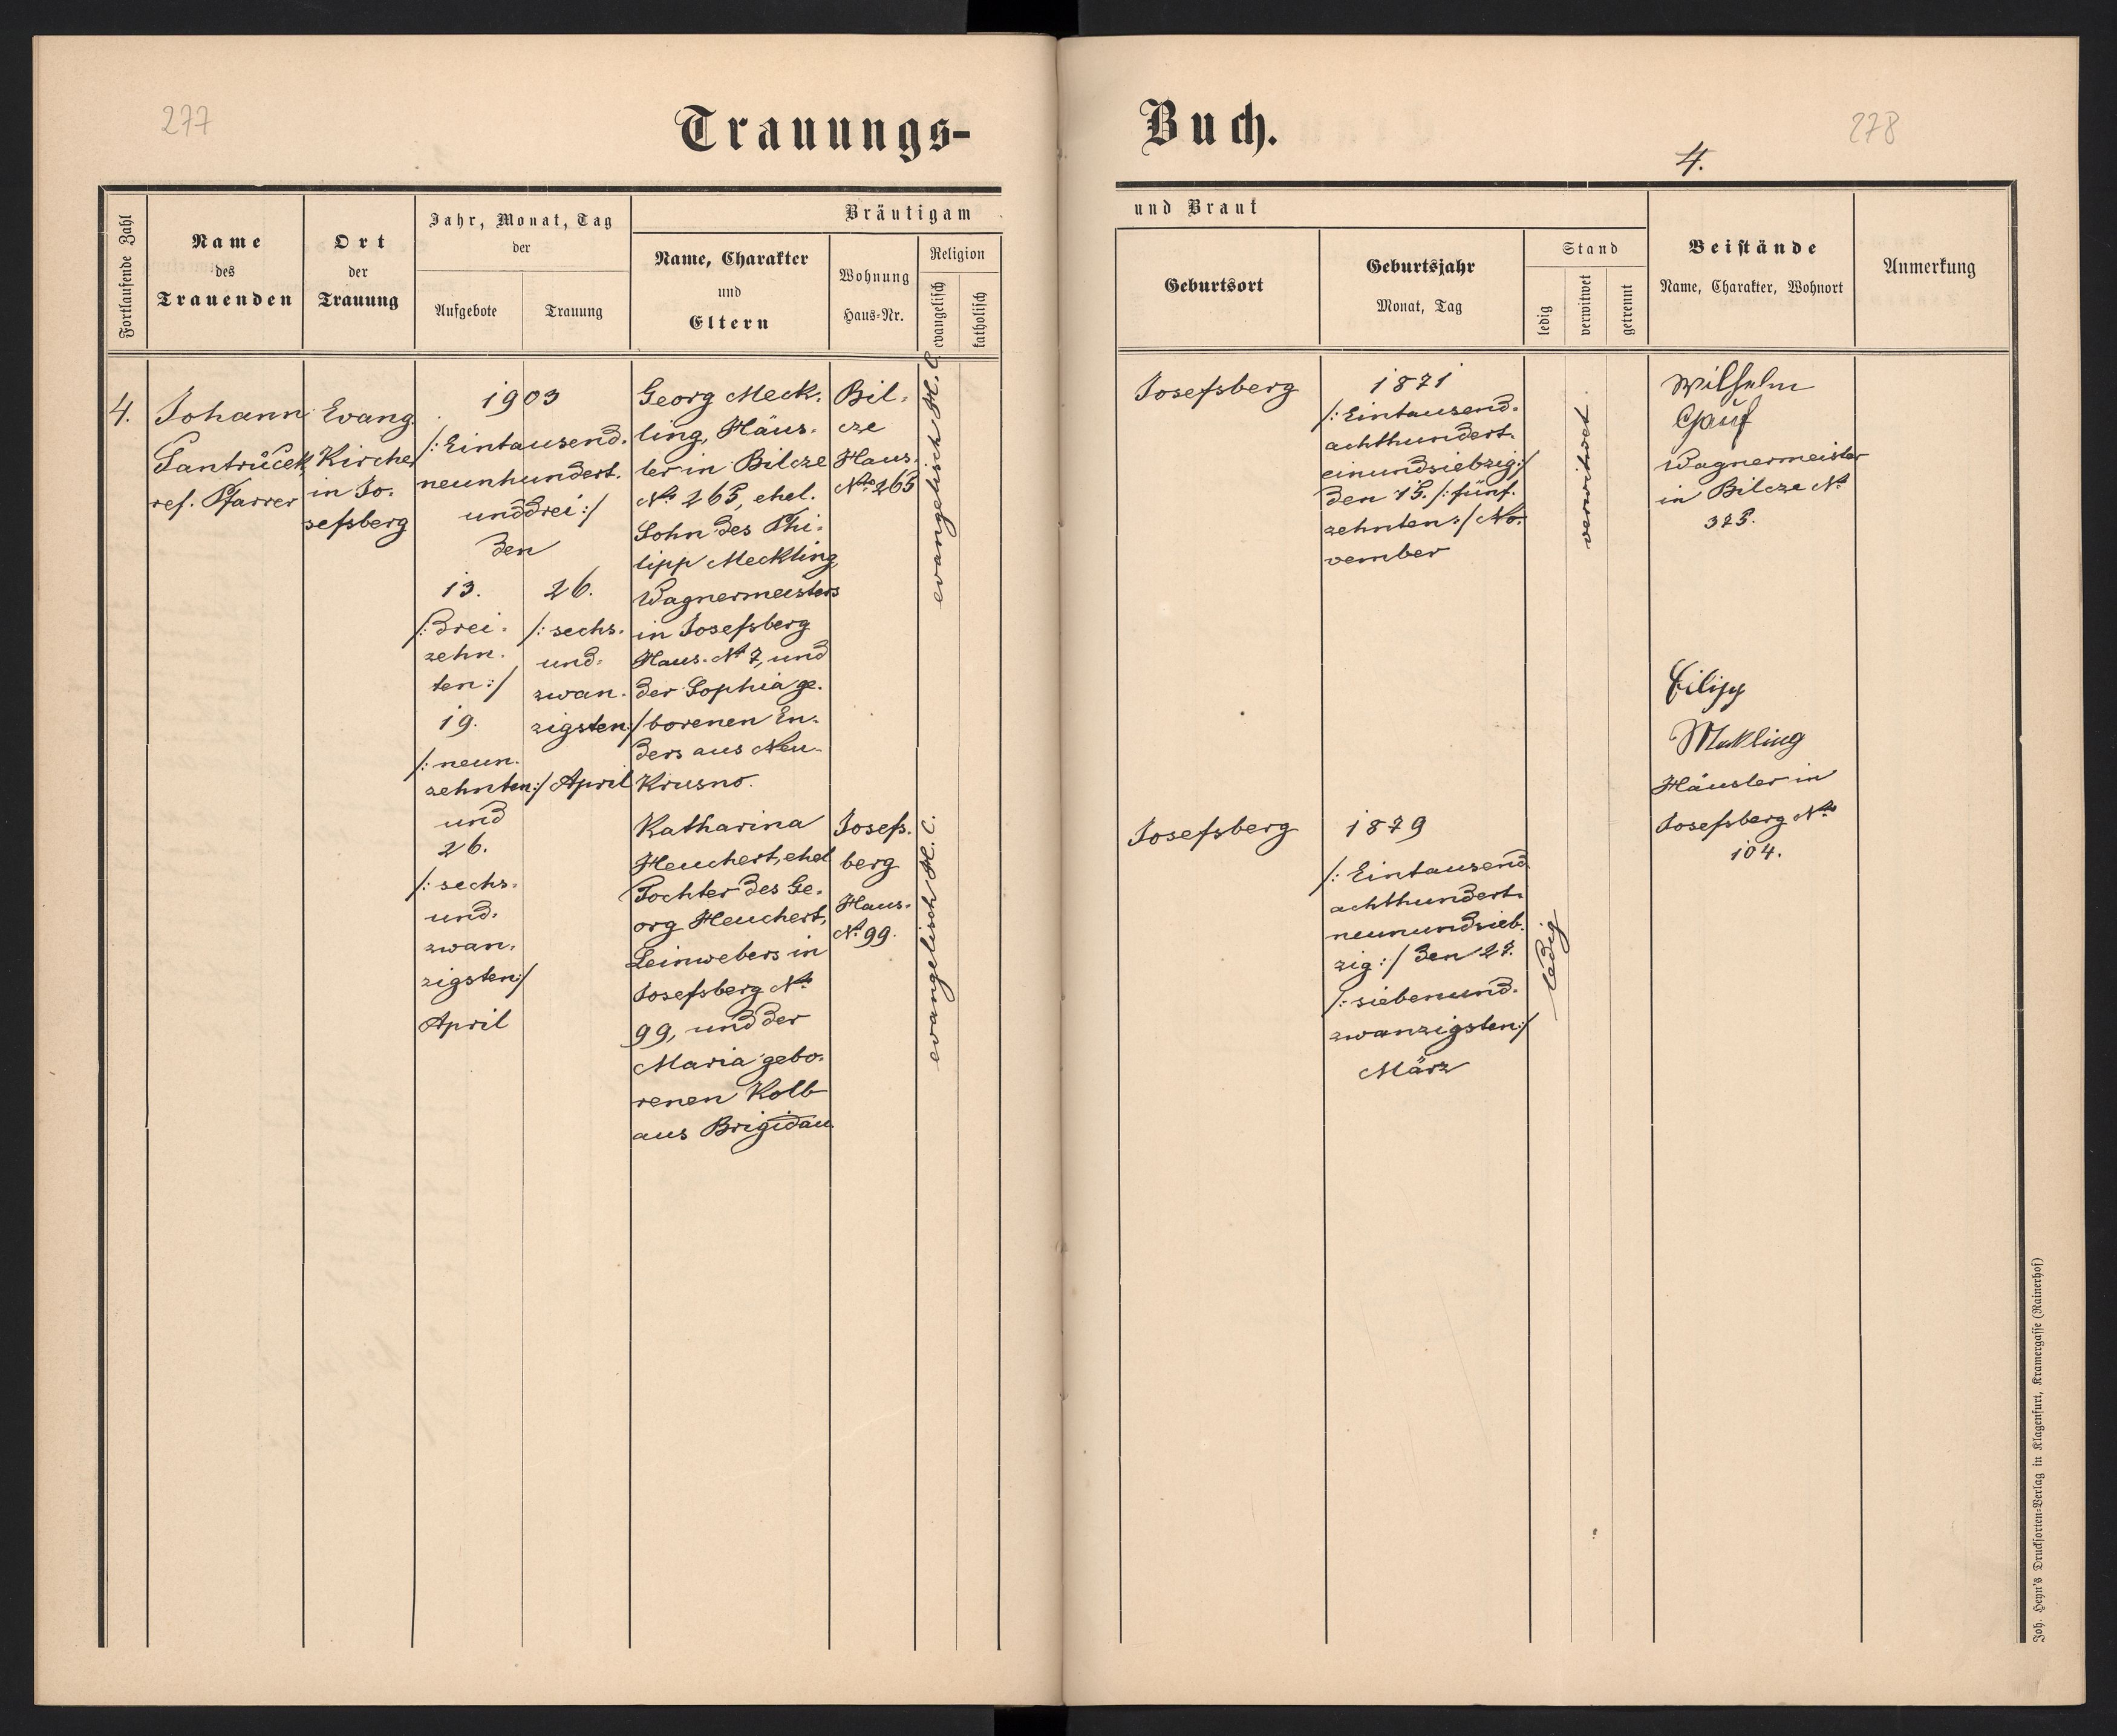 277
Trauungs-
Fortlaufende Zahl
Name
des
Trauenden
Ort
der
Trauung
Jahr, Monat, Tag
der
Aufgebote
Trauung
Bräutigam
Name, Charakter
und
Eltern
Wohnung
Haus-Nr.
Religion
evangelisch
katholisch
4.
Johann
Santrůček
ref. Pfarrer
Evang.
Kirche
in Jo-
sefsberg
1903
/: Eintausend-
neunhundert-
unddrei :/
den
13.
/: drei-
zehn-
ten :/
19.
/: neun-
zehnten :/
und
26.
/: sechs-
und-
zwan-
zigsten :/
April
26.
/: sechs-
und-
zwan-
zigsten :/
April
Georg Meck-
ling, Häus-
ler in Bilcze
No 265, ehel.
Sohn des Phi-
lipp Meckling,
Wagnermeisters
in Josefsberg
Haus-No 7, und
der Sophia ge-
borenen En-
ders aus Neu-
Krusno.
Bil-
cze
Haus-
No 265
evangelisch H. C.
Katharina
Heuchert, ehel
Tochter des Ge-
org Heuchert,
Leinwebers in
Josefsberg No
99, und der
Maria gebo-
renen Kolb
aus Brigidau
Josefs-
berg
Haus-
No 99.
evangelisch H. C.
Buch.
278
4.
und Braut
Geburtsort
Geburtsjahr
Monat, Tag
Stand
ledig
verwitwet
getrennt
Beistände
Name, Charakter, Wohnort
Anmerkung
Josefsberg
1871
/: Eintausend-
achthundert-
einundsiebzig :/
den 15. /: fünf-
zehnten :/ No-
vember
verwitwet
Wilhelm
Wagnermeister
in Bilcze No
325.
Filipp
Mekling
Häusler in
Josefsberg No
104.
Josefsberg
1879
/: Eintausend
achthundert-
neunundsieb-
zig :/ den 27.
/: siebenund-
zwanzigsten :/
März
ledig
Joh. Heyn's Drucksorten-Verlag in Klagenfurt, Kramergasse (Rainerhof)